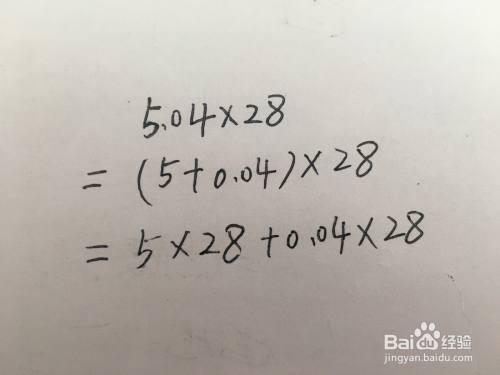 5.04×28
=(5+0.04)×28
=5×28+0.04×28
Baidu 经验
jingyan.baidu.com